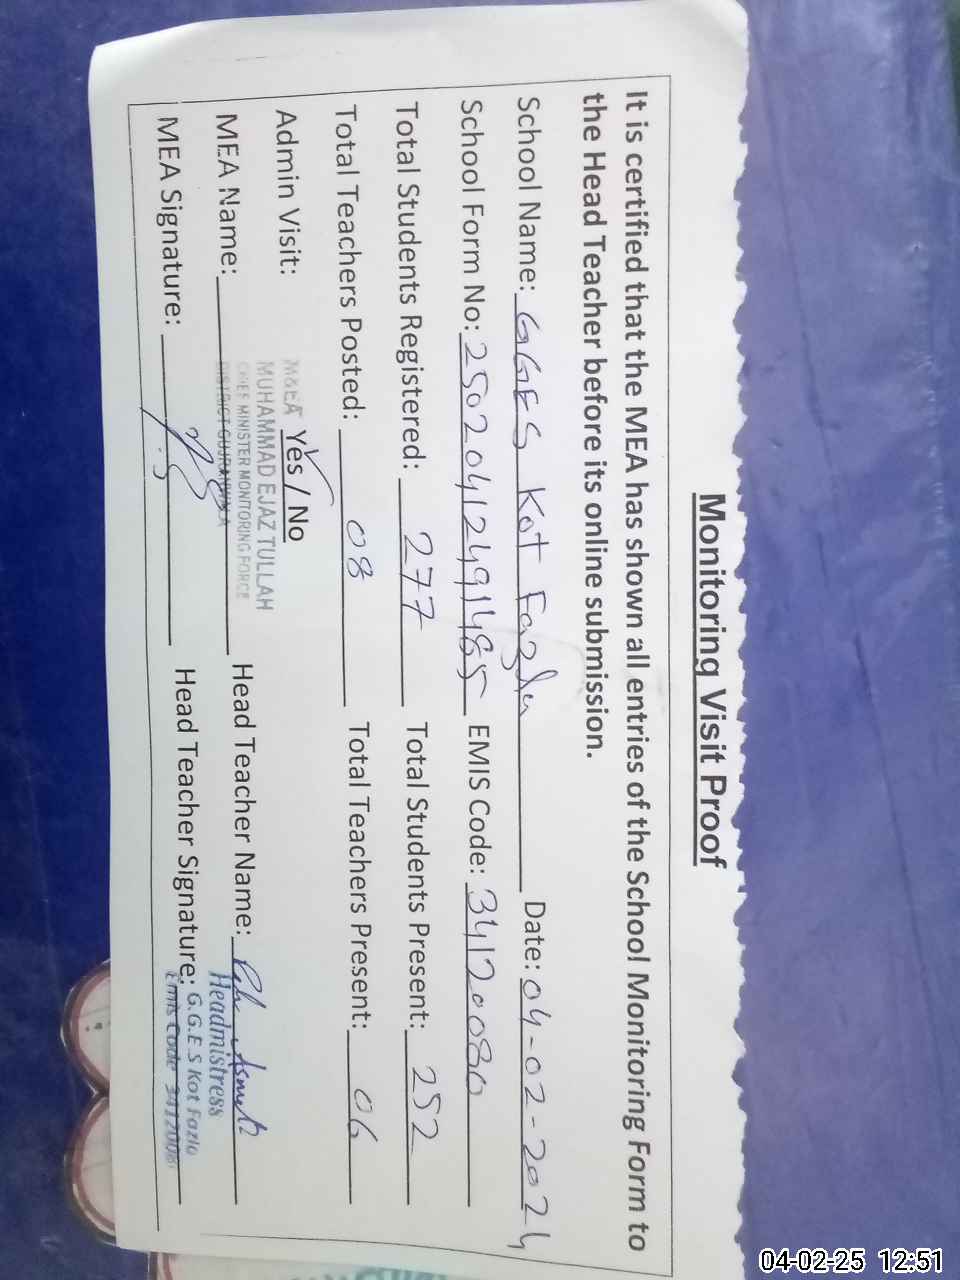 Monitoring Visit Proof
It is certified that the MEA has shown all entries of the School Monitoring Form to
the Head Teacher before its online submission.
School Name: GGES Kot Fazlu Date: 04-02-2024
School Form No: 25020412491485 EMIS Code: 34120080
Total Students Registered: 277 Total Students Present: 252
Total Teachers Posted: 08 Total Teachers Present: 06
Admin Visit: Yes / No
M&EA
MUHAMMAD EJAZ TULLAH
CHIEF MINISTER MONITORING FORCE
DISTRICT GUJRANWALA
MEA Name: Head Teacher Name:
Headmistress
MEA Signature: Head Teacher Signature: G.G.E.S Kot Fazlo
Emis Code 3412008
04-02-25 12:51